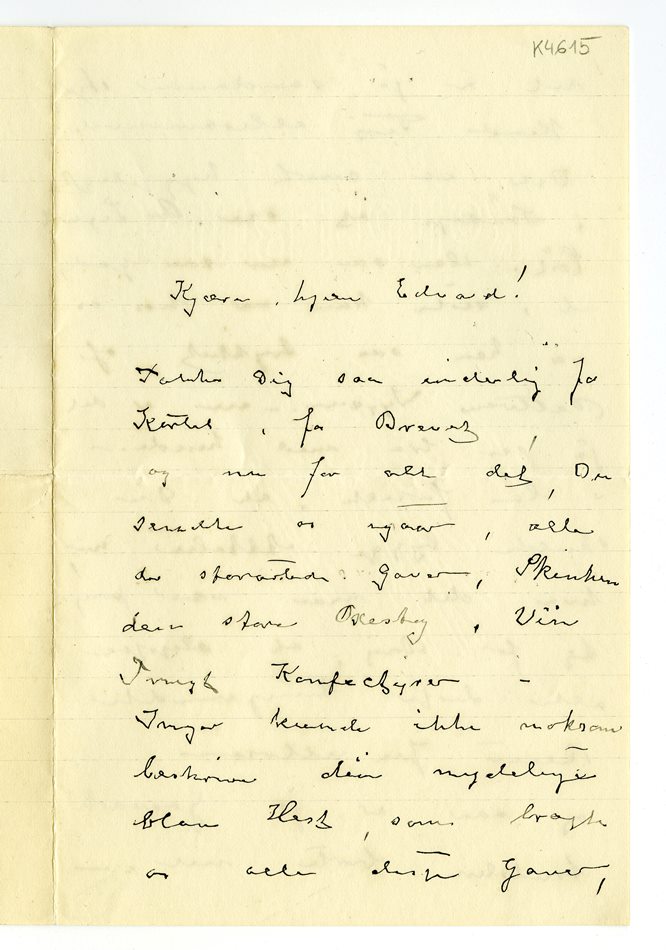 K4615
Kjære, kjere Edvard!
Takker Dig saa inderlig for
Kortet, for Brevet
og nu for alt det, Du
sendte os igaar, alle
de storartede Gaver, Skinken
den store Oxesteg, Vin
Frugt Konfectyser –
Inger kunde ikke noksom
beskrive den nydelige
blaa Hest, som bragte
os alle disse Gaver,